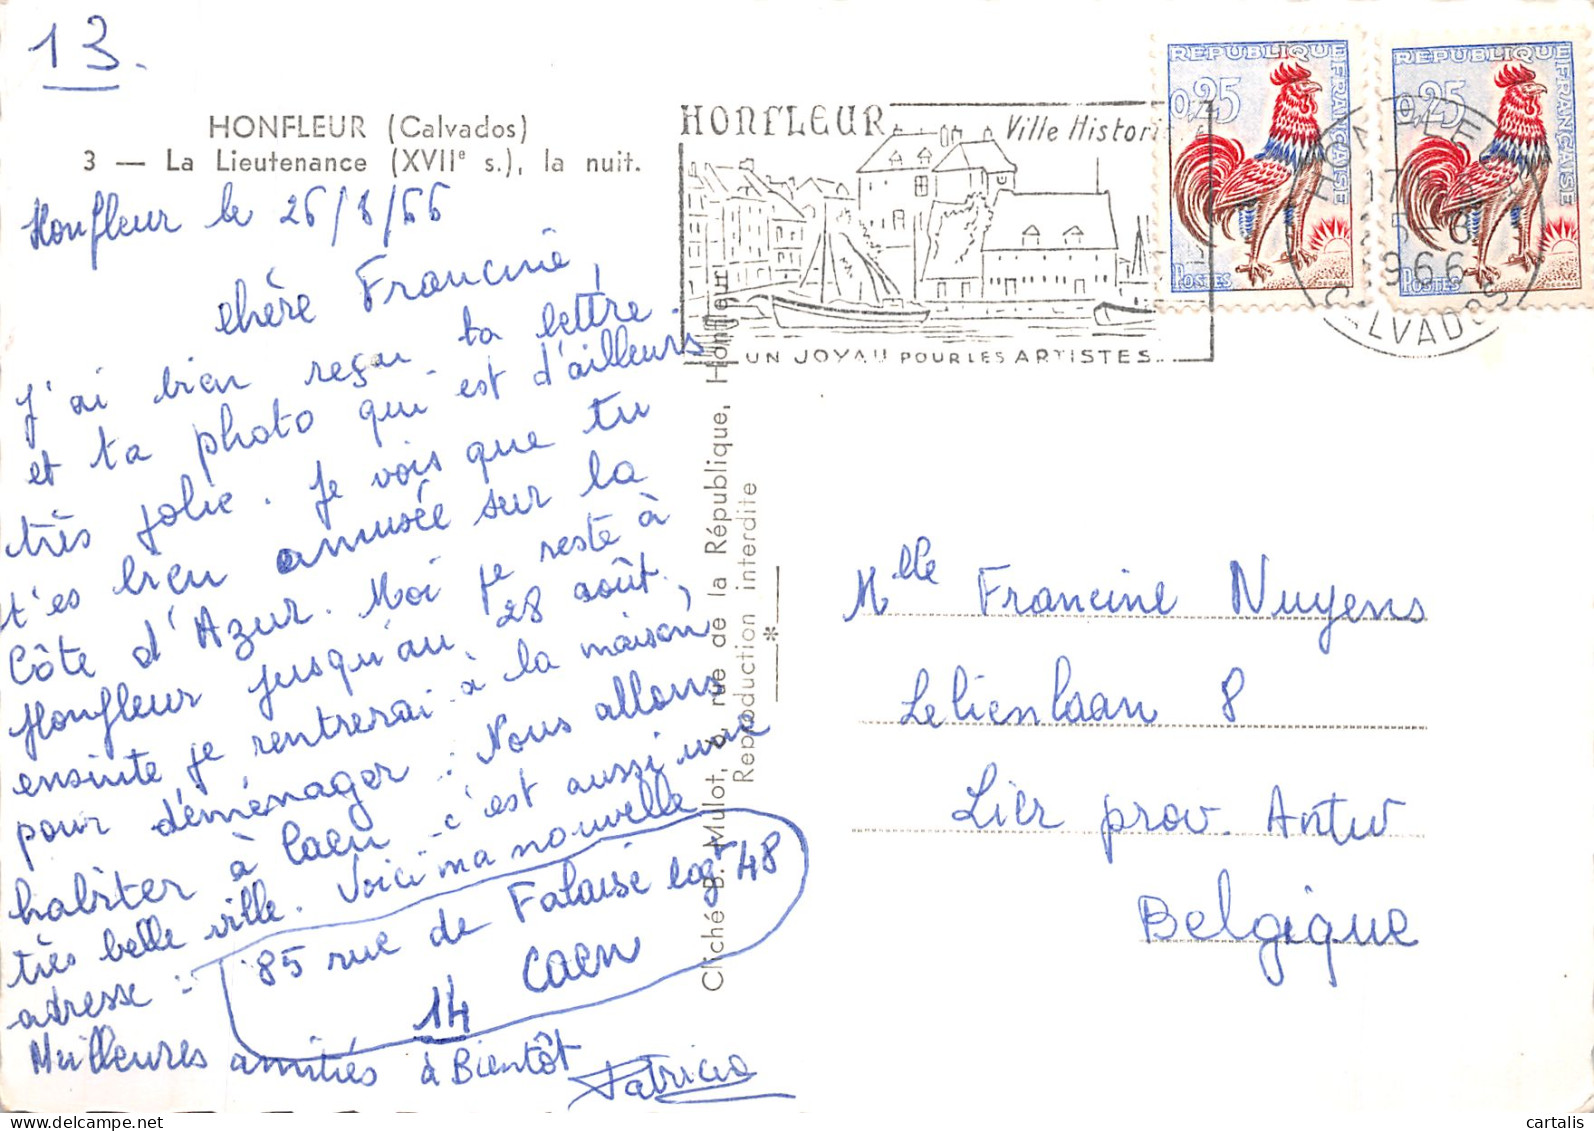 13.
HONFLEUR (Calvados)
3 — La Lieutenance (XVIIe s.), la nuit.
Honfleur le 26/8/66
chère Francine,
J'ai bien reçu ta lettre
et ta photo qui est d'ailleurs
très jolie. Je vois que tu
t'es bien amusée sur la
Côte d'Azur. Moi je reste à
Honfleur jusqu'au 28 août,
ensuite je rentrerai à la maison
pour déménager. Nous allons
habiter à Caen - c'est aussi une
très belle ville. Voici ma nouvelle
adresse :
85 rue de Falaise logt 48
14 Caen
Meilleures amitiés à Bientôt
Patricia
Cliché B. Mulot, rue de la République, Honfleur
Reproduction interdite
HONFLEUR Ville Histori
UN JOYAU POUR LES ARTISTES
REPUBLIQUE FRANÇAISE
0,25
POSTES
DECARIS
REPUBLIQUE FRANÇAISE
0,25
POSTES
DECARIS
HONFLEUR
17
1966
CALVADOS
Mlle Francine Nuyens
Lelienlaan 8
Lier prov. Antw
Belgique
cartalis
www.delcampe.net